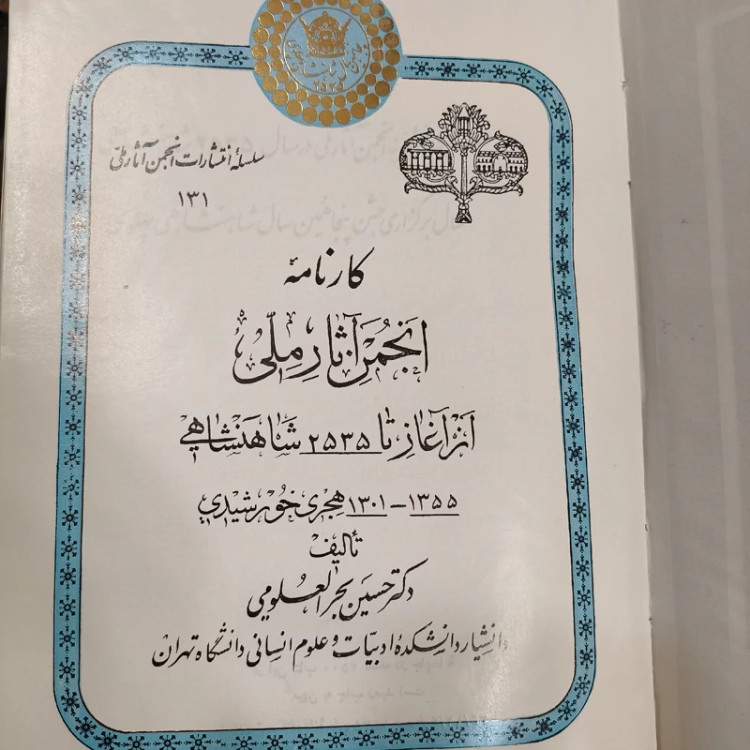 سلسلهٔ انتشارات انجمن آثار ملّی
۱۳۱
کارنامهٔ
انجمن آثار ملّی
از آغاز تا ۲۵۳۵ شاهنشاهی
۱۳۵۵ – ۱۳۰۱ هجری خورشیدی
تألیف
دکتر حسین بحرالعلومی
دانشیار دانشکدهٔ ادبیّات و علوم انسانی دانشگاه تهران